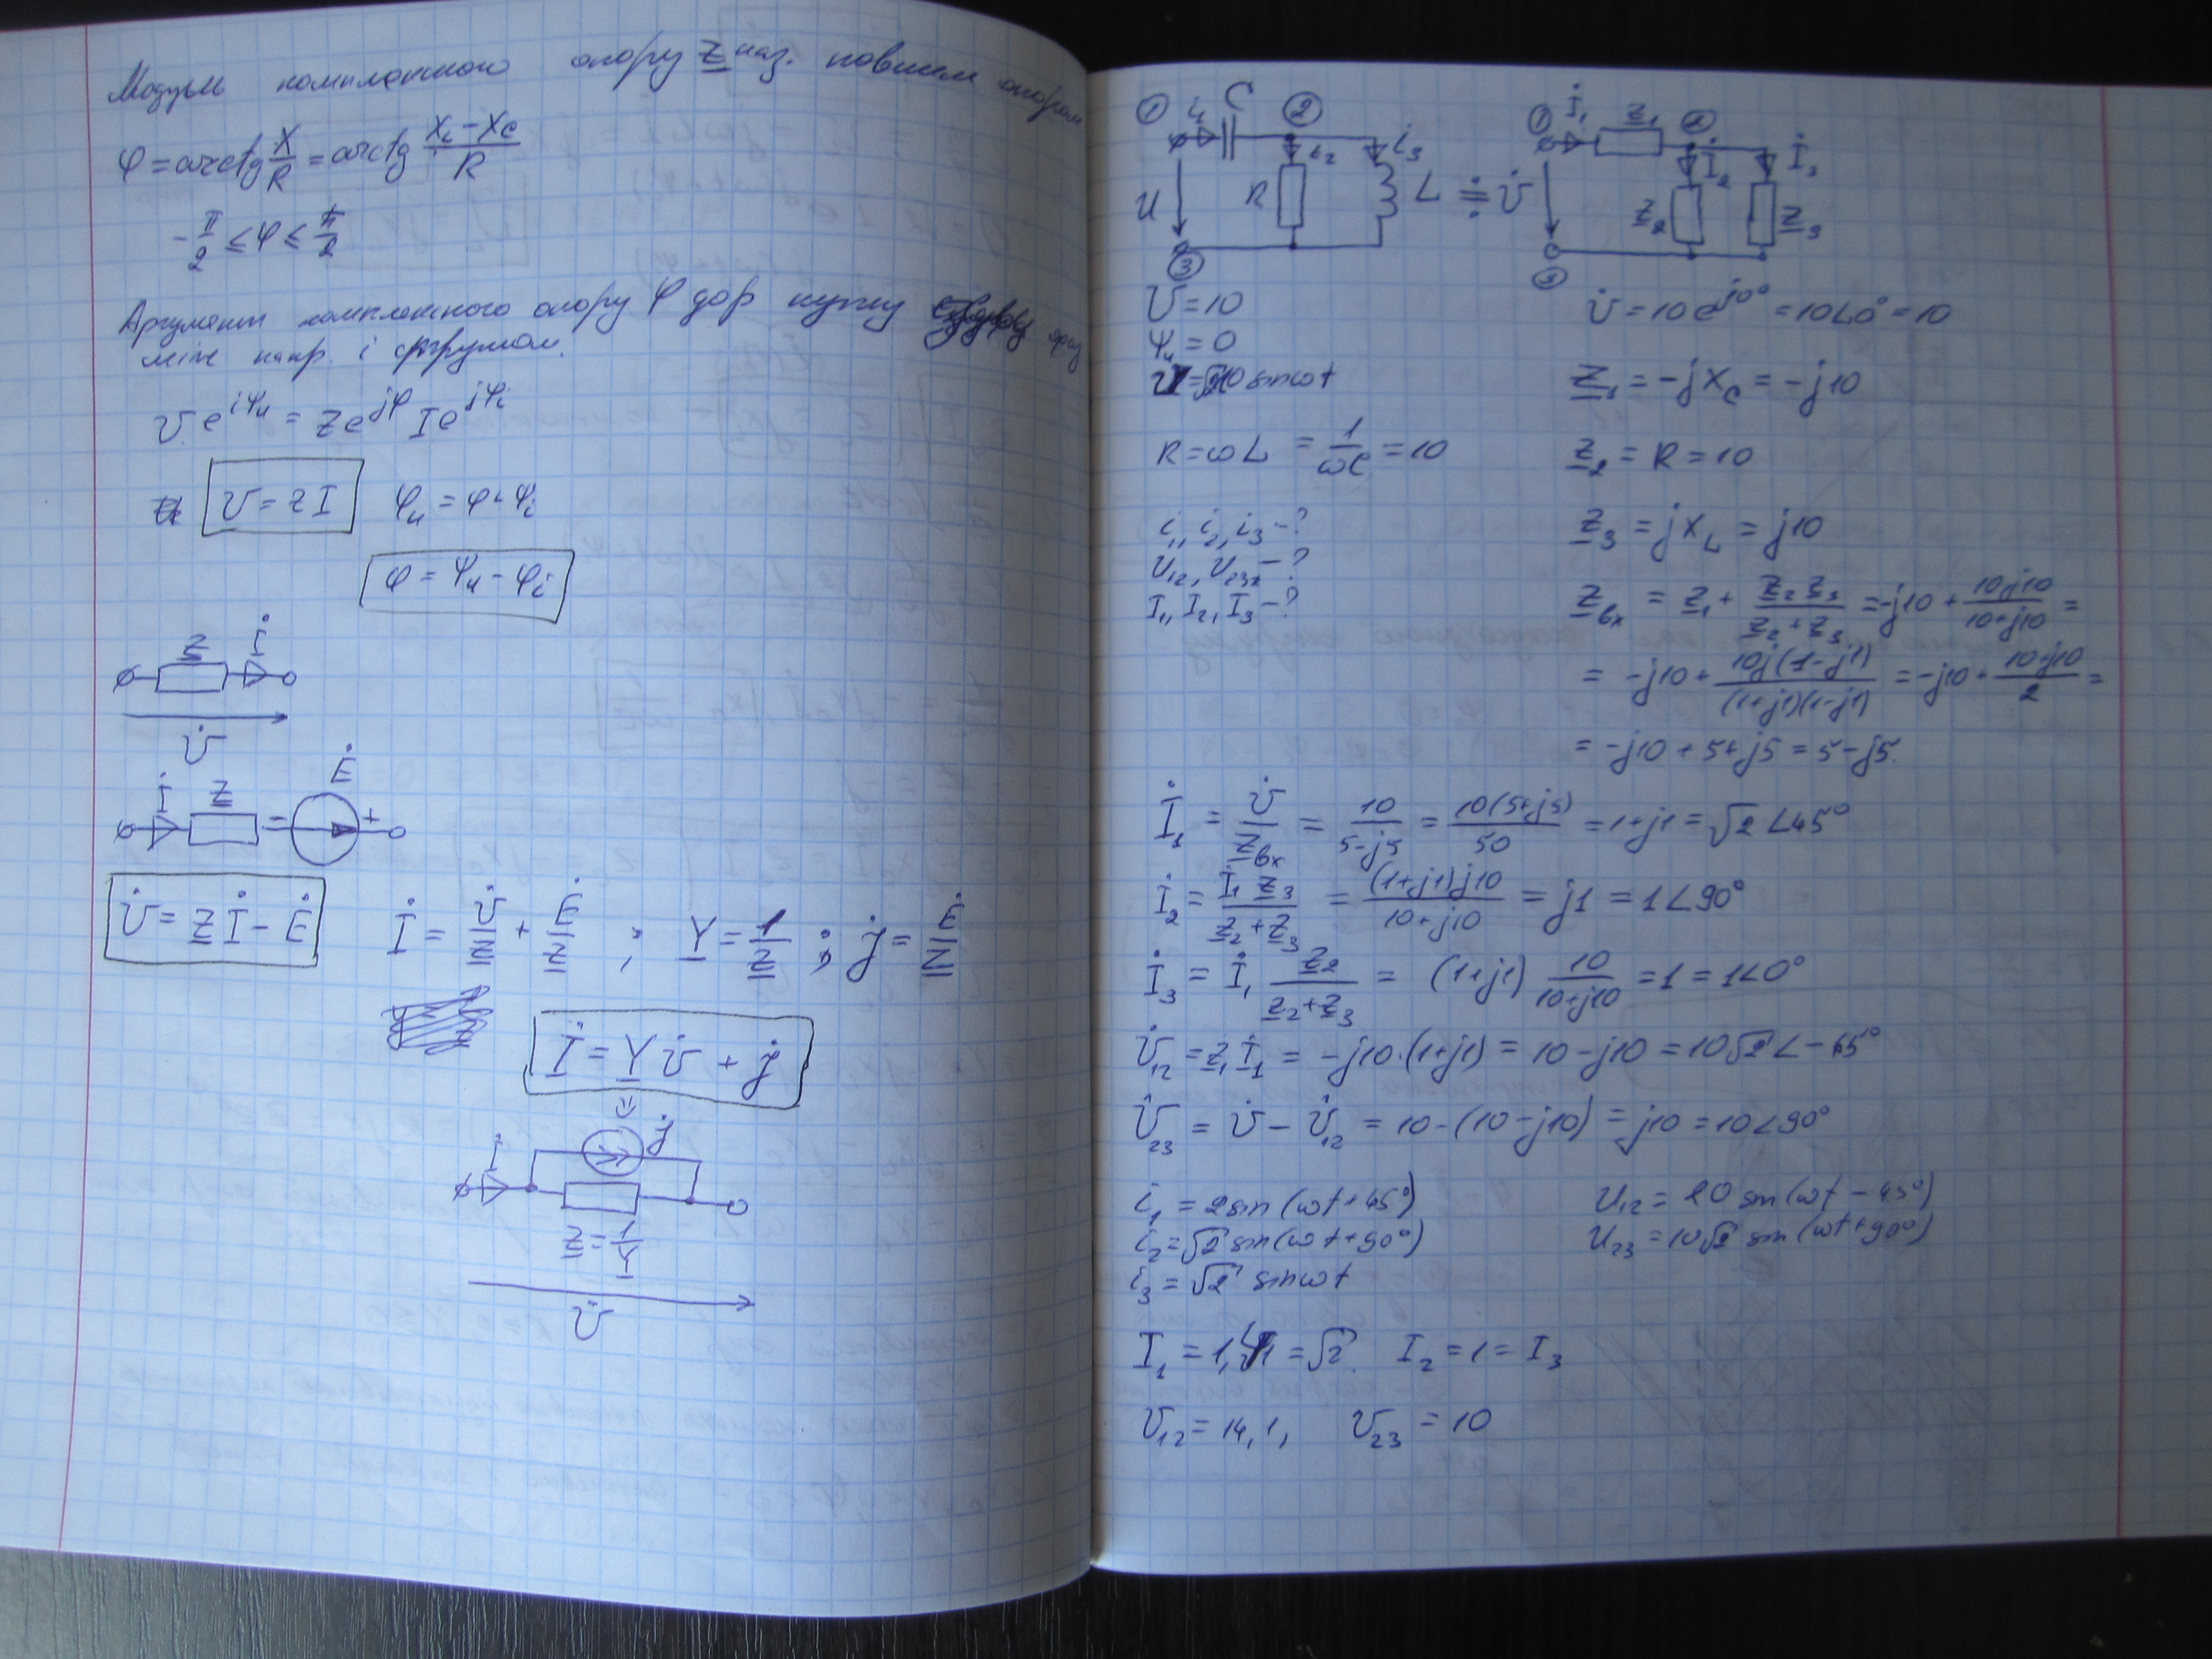 Модуль комплексного опору Z наз. повним опором
φ = arctg X/R = arctg (X_L − X_C)/R
−π/2 ≤ φ ≤ π/2
Аргумент комплексного опору φ дор куту
між напр. і струмом.
U e^{jψu} = z e^{jφ} I e^{jψi}
U = z I   ψu = φ + ψi
φ = ψu − ψi
Z İ
U̇
İ Z − Ė +
U̇ = Z İ − Ė   İ = U̇/Z + Ė/Z ; Y = 1/Z ; j̇ = Ė/Z
İ = Y U̇ + j̇
=
İ j̇
Z = 1/Y
U̇
① i₁ C ② i₂ i₃
U R L ≑ U̇
③
① İ₁ Z₁ ② İ₂ İ₃
Z₂ Z₃
③
U = 10
ψu = 0
U = √2 10 sinωt
R = ωL = 1/ωC = 10
i₁, i₂, i₃ − ?
U₁₂, U₂₃ − ?
I₁, I₂, I₃ − ?
U̇ = 10 e^{j0°} = 10∠0° = 10
Z₁ = −jX_C = −j10
Z₂ = R = 10
Z₃ = jX_L = j10
Z_вх = Z₁ + Z₂Z₃/(Z₂+Z₃) = −j10 + 10j10/(10+j10) =
= −j10 + 10j(1−j1)/((1+j1)(1−j1)) = −j10 + (10+j10)/2 =
= −j10 + 5+j5 = 5−j5.
İ₁ = U̇/Z_вх = 10/(5−j5) = 10(5+j5)/50 = 1+j1 = √2∠45°
İ₂ = İ₁Z₃/(Z₂+Z₃) = (1+j1)j10/(10+j10) = j1 = 1∠90°
İ₃ = İ₁ Z₂/(Z₂+Z₃) = (1+j1) 10/(10+j10) = 1 = 1∠0°
U̇₁₂ = Z₁İ₁ = −j10·(1+j1) = 10−j10 = 10√2∠−45°
U̇₂₃ = U̇ − U̇₁₂ = 10−(10−j10) = j10 = 10∠90°
i₁ = 2sin(ωt+45°)   U₁₂ = 20 sin(ωt−45°)
i₂ = √2 sin(ωt+90°)   U₂₃ = 10√2 sin(ωt+90°)
i₃ = √2 sinωt
I₁ = 1,41 = √2.   I₂ = 1 = I₃
U₁₂ = 14,1,   U₂₃ = 10